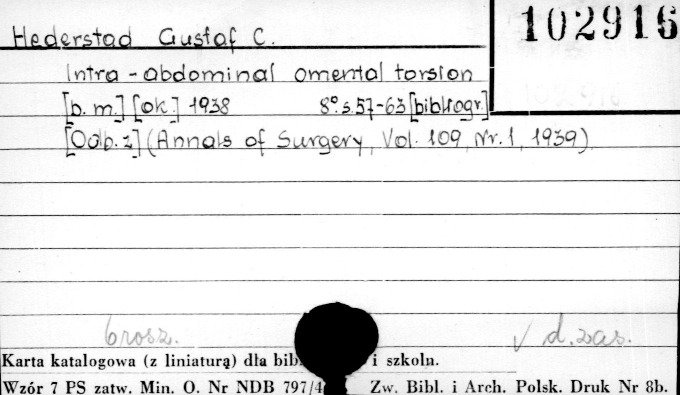 102916
Hederstad Gustaf C.
Intra-abdominal omental torsion
[b.m.] [ok.] 1938 8° s. 57-63 [bibliogr.]
[Odb. z] (Annals of Surgery, Vol. 109, Nr. 1, 1939)
brosz. √ d. zas.
Karta katalogowa (z liniaturą) dla i szkoln.
Wzór 7 PS zatw. Min. O. Nr NDB Zw. Bibl. i Arch. Polsk. Druk Nr 8b.